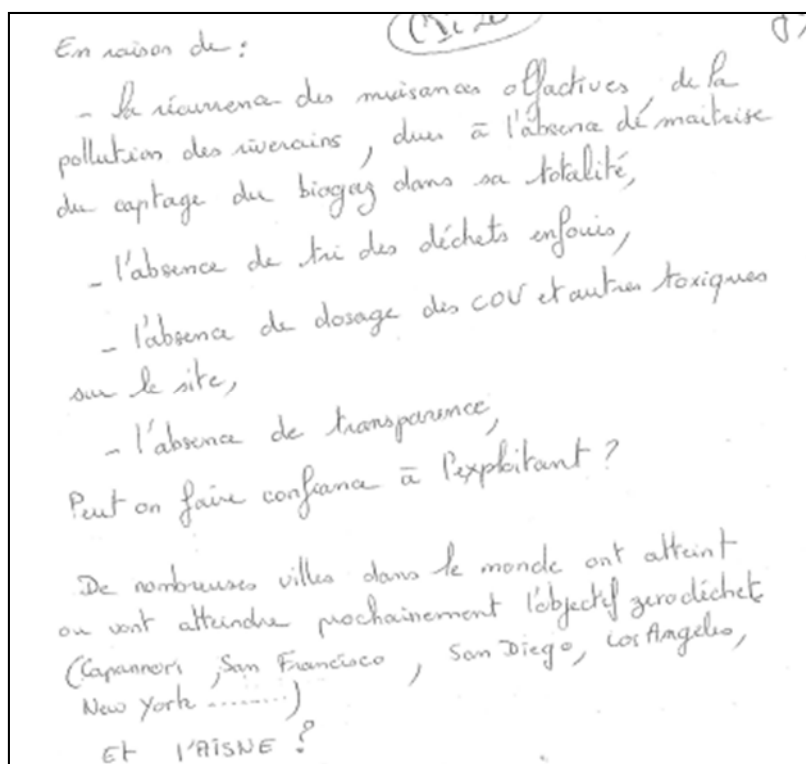 En raison de :
- la récurrence des nuisances olfactives, de la
pollution des riverains, dues à l'absence de maitrise
du captage du biogaz dans sa totalité,
- l'absence de tri des déchets enfouis,
- l'absence de dosage des COV et autres toxiques
sur le site,
- l'absence de transparence,
Peut on faire confiance à l'exploitant ?
De nombreuses villes dans le monde ont atteint
ou vont atteindre prochainement l'objectif zero déchet
(Capannori, San Francisco, San Diego, Los Angeles,
New York ........)
Et l'AISNE ?